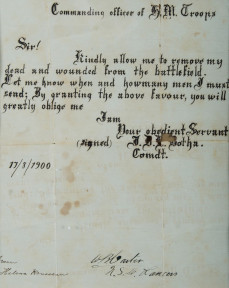 Commanding officer of H.M. Troops
Sir!
Kindly allow me to remove my
dead and wounded from the battlefield.
Let me know when and howmany men I must
send; By granting the above favour, you will
greatly oblige me
I am
Your obedient Servant
(signed) Botha.
Comdt.
17/3/1900
Lancers